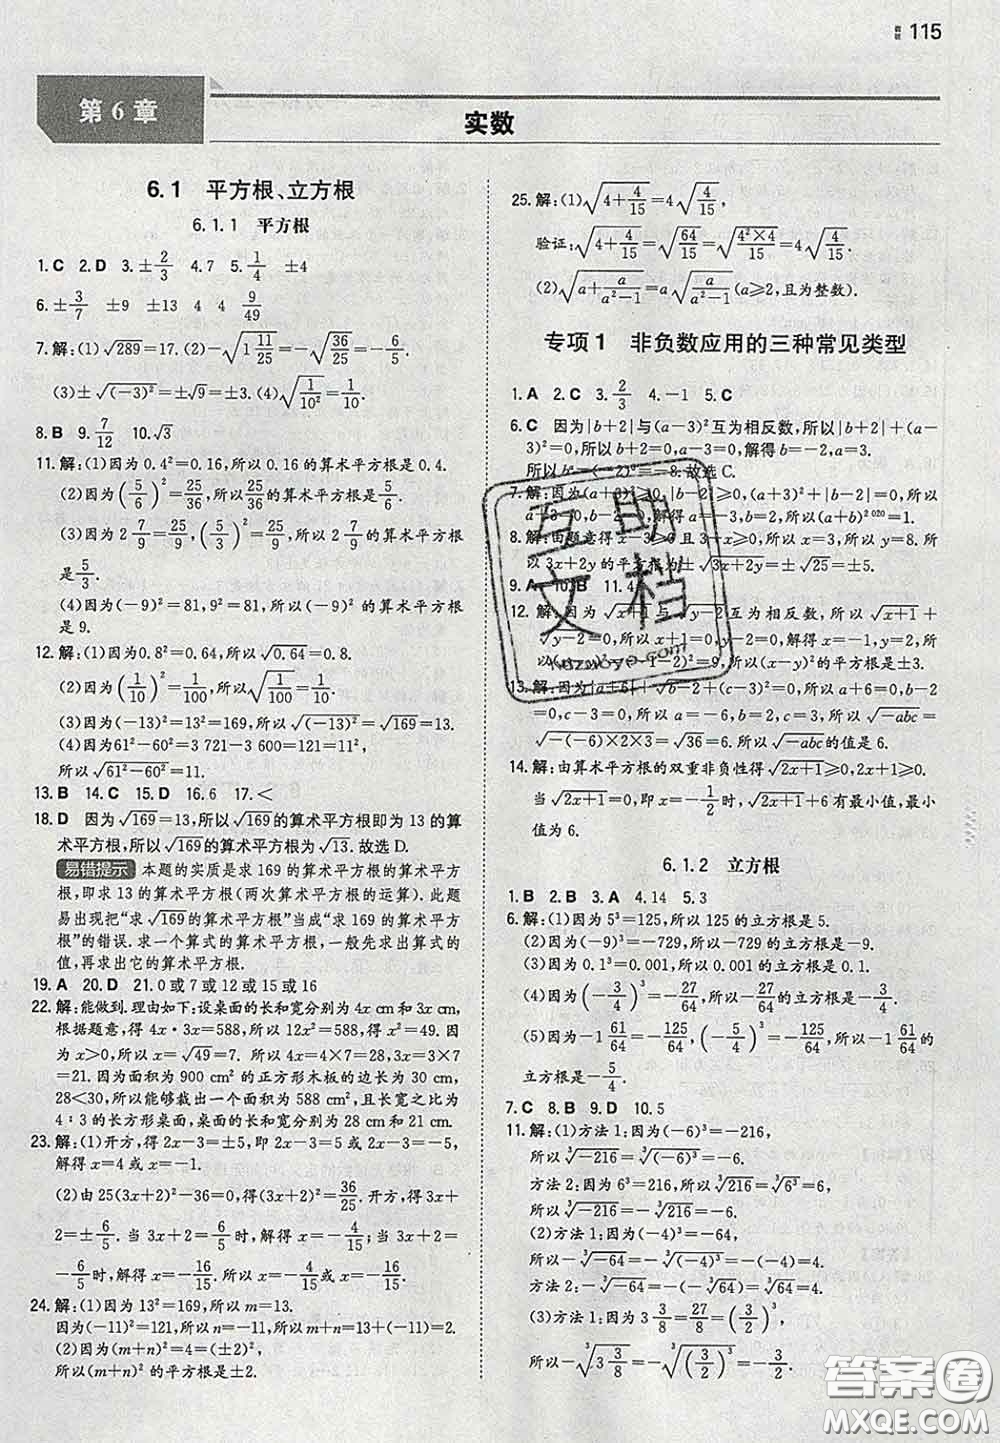 115
第6章
实数
6.1 平方根、立方根
6.1.1 平方根
1.C 2.D 3.±2/3 4.7 5.1/4 ±4
6.±3/7 ±9 ±13 4 4 9/49
7.解:(1)√289=17.(2)-√(1 11/25)=-√(36/25)=-6/5.
(3)±√(-3)²=±√9=±3.(4)√(1/10²)=1/10.
8.B 9.7/12 10.√3
11.解:(1)因为0.4²=0.16,所以0.16的算术平方根是0.4.
(2)因为(5/6)²=25/36,所以25/36的算术平方根是5/6.
(3)因为2 7/9=25/9,(5/3)²=25/9,所以2 7/9的算术平方根
是5/3.
(4)因为(-9)²=81,9²=81,所以(-9)²的算术平方根
是9.
12.解:(1)因为0.8²=0.64,所以√0.64=0.8.
(2)因为(1/10)²=1/100,所以√(1/100)=1/10.
(3)因为(-13)²=13²=169,所以√(-13)²=√169=13.
(4)因为61²-60²=3 721-3 600=121=11²,
所以√(61²-60²)=11.
13.B 14.C 15.D 16.6 17.<
18.D 因为√169=13,所以√169的算术平方根即为13的算
术平方根,所以√169的算术平方根为√13.故选D.
易错提示 本题的实质是求169的算术平方根的算术平方
根,即求13的算术平方根(两次算术平方根的运算).此题
易出现把“求√169的算术平方根”当成“求169的算术平方
根”的错误.求一个算式的算术平方根,一般先求出算式的
值,再求出它的算术平方根.
19.A 20.D 21.0或7或12或15或16
22.解:能做到.理由如下:设桌面的长和宽分别为4x cm和3x cm,
根据题意,得4x·3x=588,所以12x²=588,所以x²=49.因
为x>0,所以x=√49=7. 所以4x=4×7=28,3x=3×7
=21.因为面积为900 cm²的正方形木板的边长为30 cm,
28<30,所以能够裁出一个面积为588 cm²,且长宽之比为
4∶3的长方形桌面,桌面的长和宽分别为28 cm和21 cm.
23.解:(1)开方,得2x-3=±5,即2x-3=5或2x-3=-5,
解得x=4或x=-1.
(2)由25(3x+2)²-36=0,得(3x+2)²=36/25.开方,得3x+
2=±6/5.当3x+2=6/5时,解得x=-4/15;当3x+2=
-6/5时,解得x=-16/15.所以x=-4/15或x=-16/15.
24.解:(1)因为13²=169,所以m=13.
因为(-11)²=121,所以n=-11,所以m+n=13+(-11)=2.
(2)因为(m+n)²=4=(±2)²,
所以(m+n)²的平方根是±2.
25.解:(1)√(4+4/15)=4√(4/15).
验证:√(4+4/15)=√(64/15)=√(4²×4/15)=4√(4/15).
(2)√(a+a/(a²-1))=a√(a/(a²-1))(a≥2,且为整数).
专项1 非负数应用的三种常见类型
1.A 2.C 3.2/3 4.-1 5.C
6.C 因为|b+2|与(a-3)²互为相反数,所以|b+2|+(a-
3)²=0,所以b+2=0,a-3=0,解得b=-2,a=3.
所以bᵃ=(-2)³=-8.故选C.
7.解:因为(a+3)²≥0,|b-2|≥0,(a+3)²+|b-2|=0,所以
a+3=0,b-2=0,解得a=-3,b=2,所以(a+b)²⁰²⁰=1.
8.解:由题意得x-3≥0且3-x≥0,所以x=3,所以y=8.所
以3x+2y的平方根为±√(3x+2y)=±√25=±5.
9.A 10.B 11.4
12.解:因为√(x+1)与√(y-2)互为相反数,所以√(x+1)+
√(y-2)=0,所以x+1=0,y-2=0,解得x=-1,y=2,所
以(x-y)²=(-1-2)²=9,所以(x-y)²的平方根是±3.
13.解:因为|a+6|+√(b-2)+(c-3)²=0,所以a+6=0,b-2
=0,c-3=0,所以a=-6,b=2,c=3,所以√(-abc)=
√(-(-6)×2×3)=√36=6.所以√(-abc)的值是6.
14.解:由算术平方根的双重非负性得√(2x+1)≥0,2x+1≥0.
当√(2x+1)=0,即x=-1/2时,√(2x+1)+6有最小值,最小
值为6.
6.1.2 立方根
1.B 2.B 3.A 4.14 5.3
6.解:(1)因为5³=125,所以125的立方根是5.
(2)因为(-9)³=-729,所以-729的立方根是-9.
(3)因为0.1³=0.001,所以0.001的立方根是0.1.
(4)因为(-3/4)³=-27/64,所以-27/64的立方根是-3/4.
(5)因为-1 61/64=-125/64,(-5/4)³=-125/64,所以-1 61/64
的立方根是-5/4.
7.C 8.B 9.D 10.5
11.解:(1)方法1:因为(-6)³=-216,
所以∛-216=∛(-6)³=-6.
方法2:因为6³=216,所以∛216=∛6³=6,
所以∛-216=-∛216=-6.
(2)方法1:因为(-4)³=-64,
所以-∛-64=-∛(-4)³=-(-4)=4.
方法2:-∛-64=-(-∛64)=∛64=4.
(3)方法1:因为3 3/8=27/8=(3/2)³,
所以-∛(3 3/8)=-∛(3/2)³=-3/2.
互助
文档
答案圈
MXQE.COM